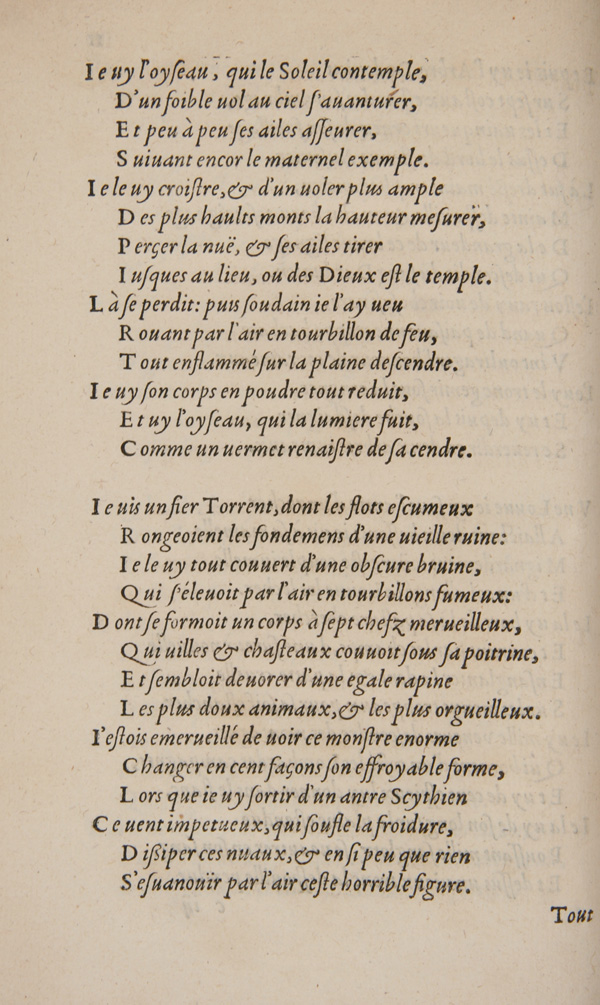 Ie uy l'oyſeau, qui le Soleil contemple,
D'un foible uol au ciel ſ'auanturer,
Et peu à peu ſes ailes aſſeurer,
Suiuant encor le maternel exemple.
Ie le uy croiſtre, & d'un uoler plus ample
Des plus haults monts la hauteur meſurer,
Perçer la nuë, & ſes ailes tirer
Iuſques au lieu, ou des Dieux eſt le temple.
Là ſe perdit: puis ſoudain ie l'ay ueu
Rouant par l'air en tourbillon de feu,
Tout enflammé ſur la plaine deſcendre.
Ie uy ſon corps en poudre tout reduit,
Et uy l'oyſeau, qui la lumiere fuit,
Comme un uermet renaiſtre de ſa cendre.
Ie uis un fier Torrent, dont les flots eſcumeux
Rongeoient les fondemens d'une uieille ruine:
Ie le uy tout couuert d'une obſcure bruine,
Qui ſ'éleuoit par l'air en tourbillons fumeux:
Dont ſe formoit un corps à ſept chefz merueilleux,
Qui uilles & chaſteaux couuoit ſous ſa poitrine,
Et ſembloit deuorer d'une egale rapine
Les plus doux animaux, & les plus orgueilleux.
I'eſtois emerueillé de uoir ce monſtre enorme
Changer en cent façons ſon effroyable forme,
Lors que ie uy ſortir d'un antre Scythien
Ce uent impetueux, qui ſoufle la froidure,
Diſſiper ces nuaux, & en ſi peu que rien
S'eſuanouïr par l'air ceſte horrible figure.
Tout